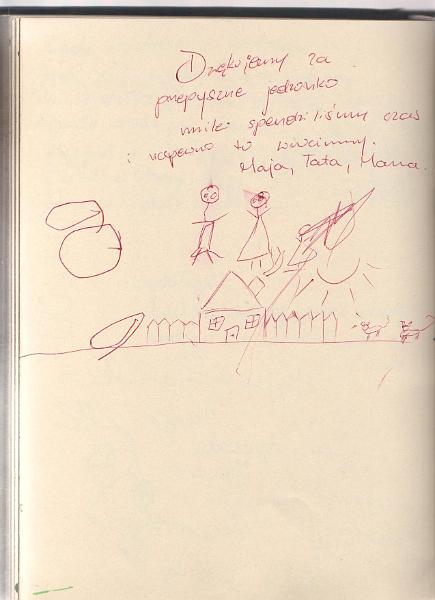 Dziękujemy za
przepyszne jedzonko
miło spędziliśmy czas
i napewno tu wrócimy.
Maja, Tata, Mama.